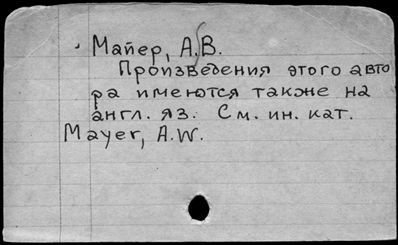 Майер, А.В.
Произведения этого авто
ра имеются также на
англ. яз. См. ин. кат.
Mayer, A.W.